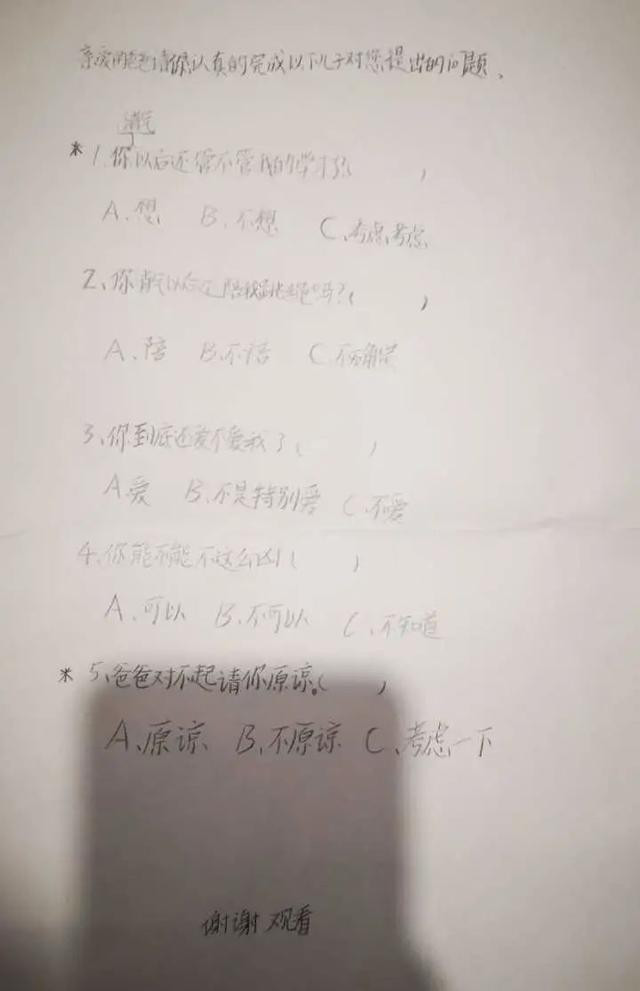 亲爱的爸爸请你认真的完成以下儿子对您提出的问题、
*1、你以后还管不管我的学习了(  )
A、想 B、不想 C、考虑考虑
2、你能以后 陪我 吗?(  )
A、陪 B、不陪 C、不确定
3、你到底还爱不爱我了(  )
A爱 B、不是特别爱 C、不爱
4、你能不能不这么凶(  )
A、可以 B、不可以 C、不知道
*5、爸爸对不起请你原谅。(  )
A、原谅、B、不原谅 C、考虑一下
谢谢观看